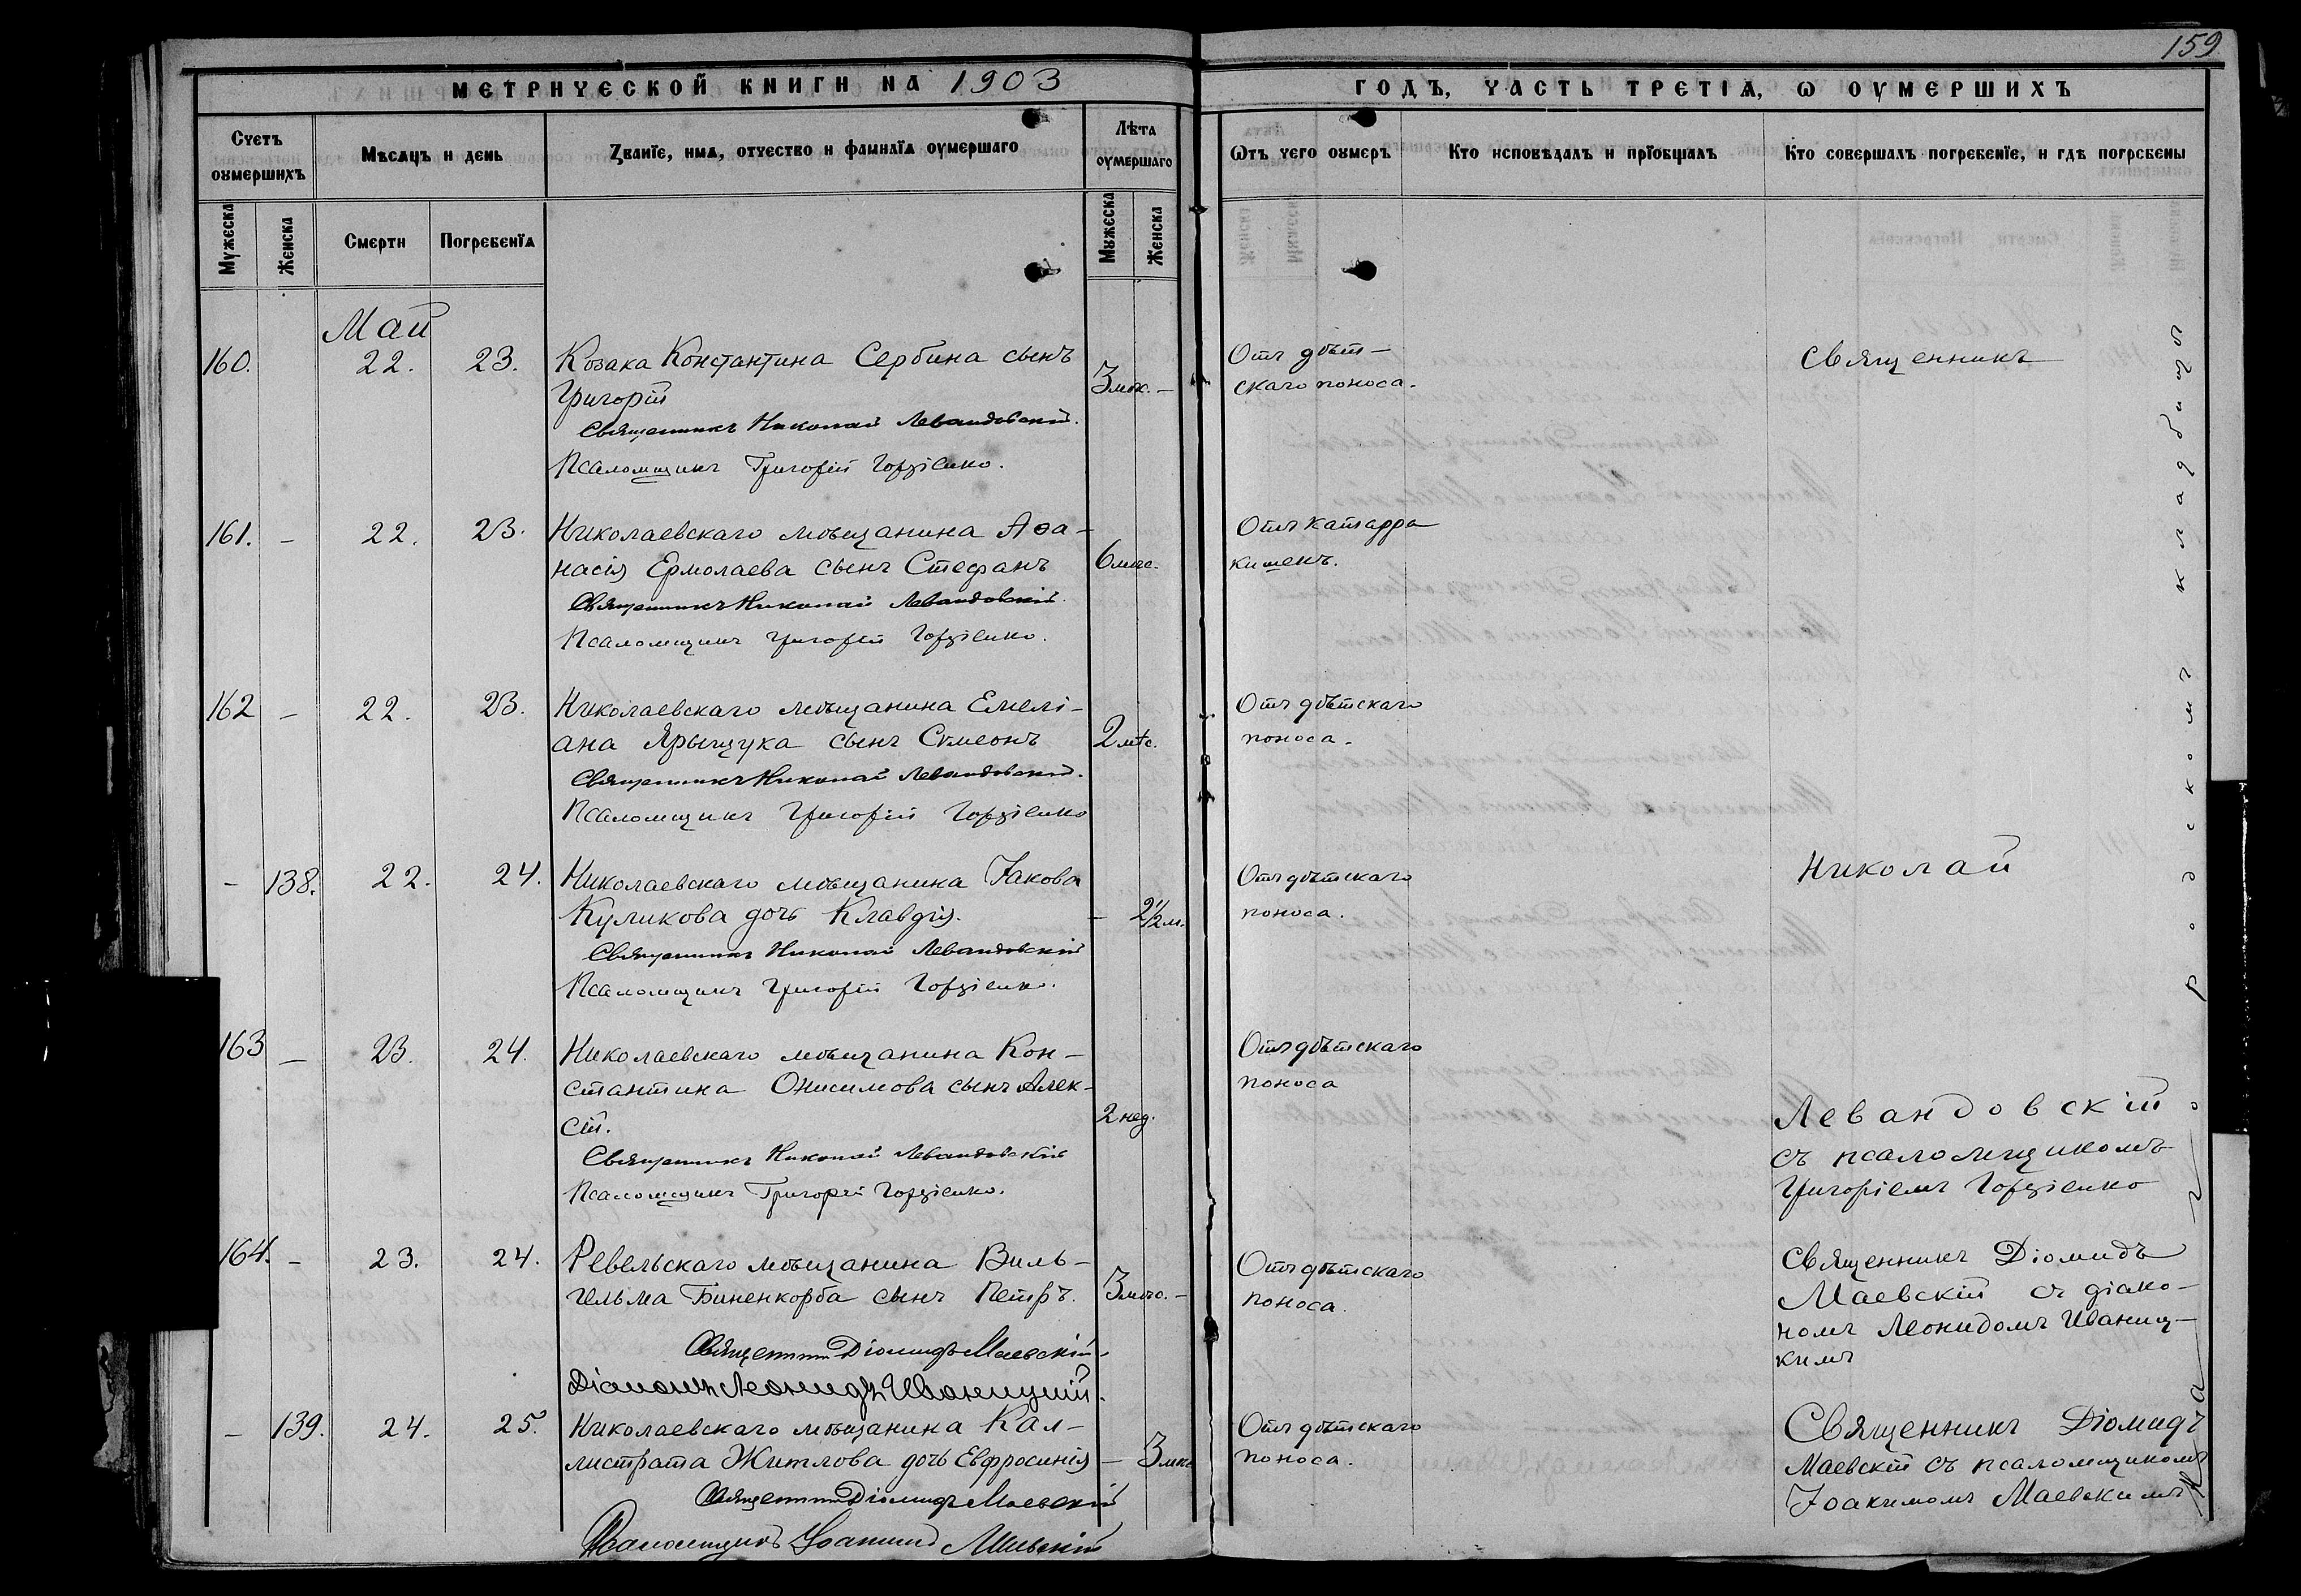 159
МЕТРИЧЕСКОЙ КНИГИ НА 1903
ГОДЪ, ЧАСТЬ ТРЕТІѦ, Ѡ ОУМЕРШИХЪ
Счетъ оумершихъ
Мѣсяцъ и день
Званїе, имѧ, отчество и фамилїѧ оумершаго
Лѣта оумершаго
Ѿтъ чего оумеръ
Кто исповѣдалъ и прїобщалъ
Кто совершалъ погребенїе, и гдѣ погребены
Мужеска
Женска
Смерти
Погребенїѧ
Мужеска
Женска
Май
160. 22. 23. Козака Константина Сербина сынъ
Григорій
3 мѣс. —
Отъ дѣт-
скаго поноса.
Священникъ
Священникъ Николай Левандовскій.
Псаломщикъ Григорій Гордіенко.
161. — 22. 23. Николаевскаго мѣщанина Аѳа-
насія Ермолаева сынъ Стефанъ
6 мѣс.
Отъ катарра
кишекъ.
Священникъ Николай Левандовскій.
Псаломщикъ Григорій Гордіенко.
162 — 22. 23. Николаевскаго мѣщанина Емелі-
ана Ярыщука сынъ Сѵмеонъ
2 мѣс.
Отъ дѣтскаго
поноса.
Священникъ Николай Левандовскій.
Псаломщикъ Григорій Гордіенко
— 138. 22. 24. Николаевскаго мѣщанина Іакова
Куликова дочь Клавдія.
— 2 1/2 м.
Отъ дѣтскаго
поноса.
Николай
Священникъ Николай Левандовскій
Псаломщикъ Григорій Гордіенко.
163 — 23. 24. Николаевскаго мѣщанина Кон-
стантина Онисимова сынъ Алек-
сій.
2 нед.
Отъ дѣтскаго
поноса
Левандовскій
съ псаломщикомъ
Григоріемъ Гордіенко
Священникъ Николай Левандовскій
Псаломщикъ Григорій Гордіенко.
164. — 23. 24. Ревельскаго мѣщанина Виль-
гельма Биненкорба сынъ Петръ.
3 мѣс. —
Отъ дѣтскаго
поноса.
Священникъ Діомидъ
Маевскій съ діако-
номъ Леонидомъ Иваниц-
кимъ
Священникъ Діомидъ Маевскій
Діаконъ Леонидъ Иваницкій.
— 139. 24. 25. Николаевскаго мѣщанина Кал-
листрата Житлова дочь Евфросинія
— 3 мѣс
Отъ дѣтскаго
поноса.
Священникъ Діомидъ
Маевскій съ псаломщикомъ
Іоакимомъ Маевскимъ
Священникъ Діомидъ Маевскій
Псаломщикъ Іоакимъ Маевскій
На городскомъ кладбищѣ